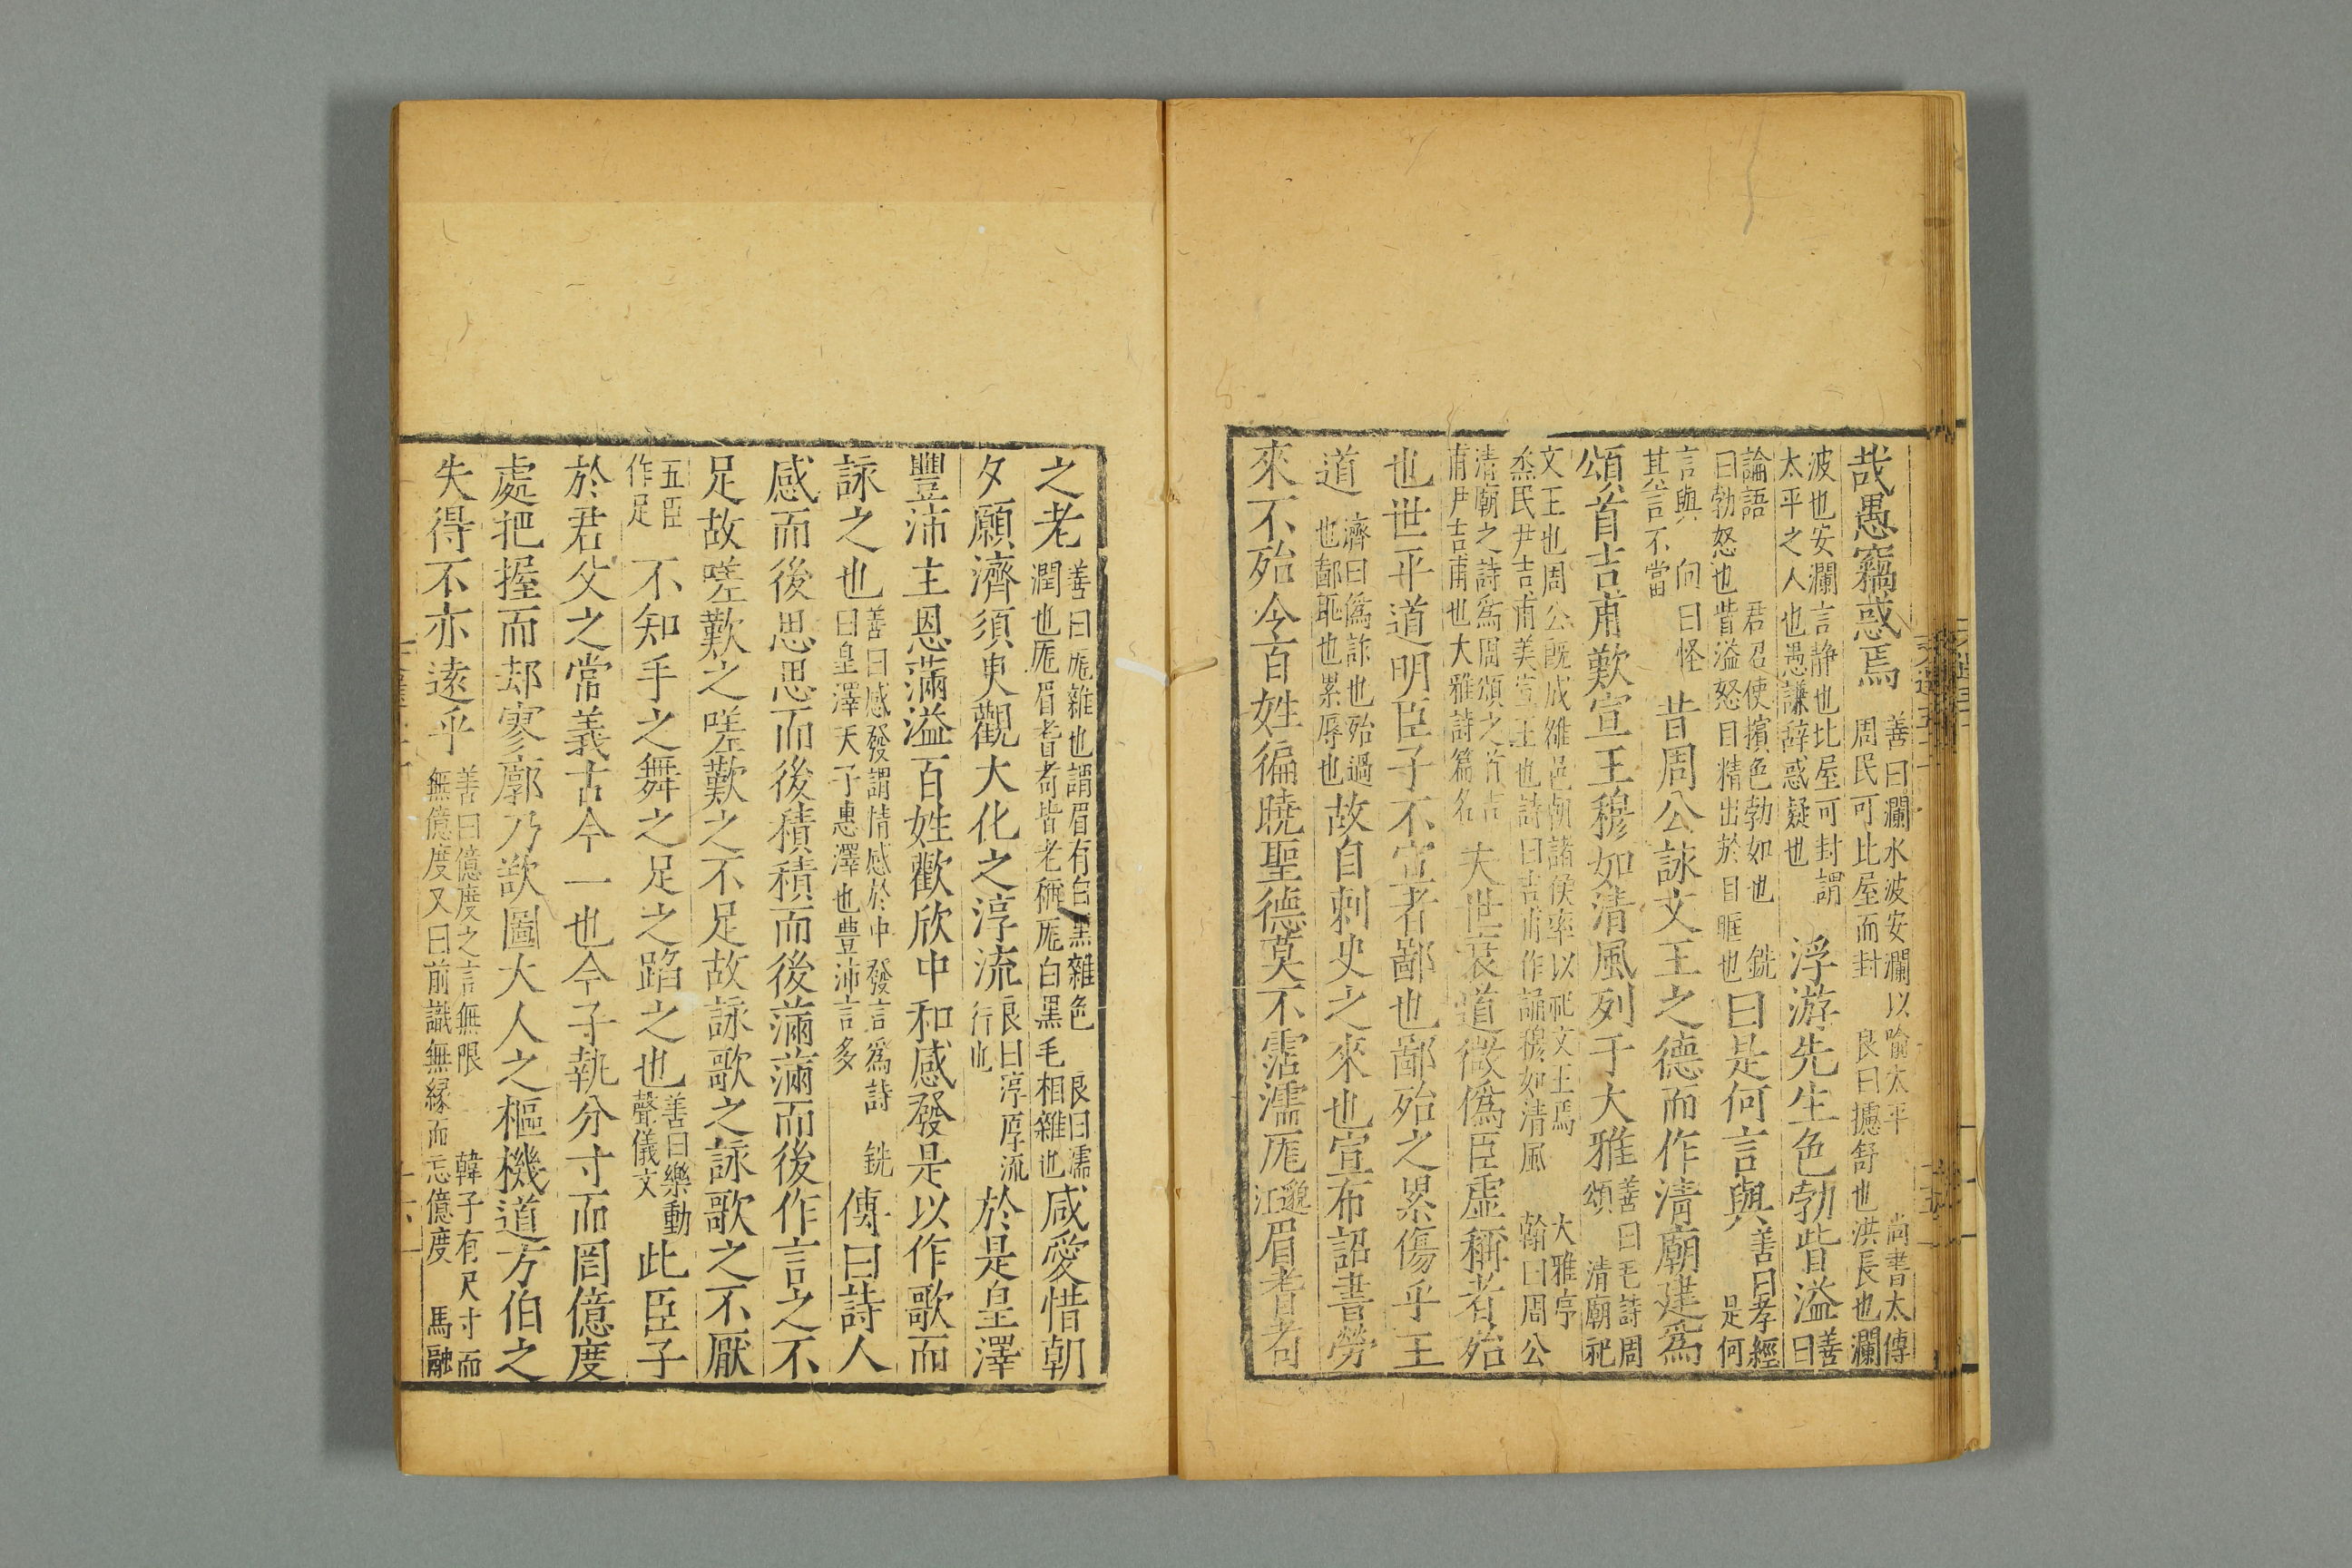 哉愚竊惑焉善曰瀾水波安瀾以喻太平尚書太傳周民可比屋而封良曰攄舒也洪長也瀾
波也安瀾言静也比屋可封謂太平之人也愚謙辞惑疑也浮游先生色勃眥溢善曰
論語君召使擯色勃如也銑曰勃怒也眥溢怒目精出於目眶也曰是何言與善曰孝經是何
言與問曰怪其言不當昔周公詠文王之德而作清廟建爲
頌首吉甫歎宣王穆如清風列于大雅善曰毛詩周頌清廟祀
文王也周公既成雒邑朝諸侯率以祀文王焉大雅序烝民尹吉甫美宣王也詩曰吉甫作誦穆如清風翰曰周公
清廟之詩爲周頌之首吉甫尹吉甫也大雅詩篇名夫世衰道微僞臣虛稱者殆
也世平道明臣子不宣者鄙也鄙殆之累傷乎王
道濟曰僞詐也殆過也鄙恥也累辱也故自刺史之來也宣布詔書勞
來不殆令百姓徧曉聖德莫不霑濡厖邈江眉耆耇
之老善曰厖雜也謂眉有白黑雜色良曰濡潤也厖眉耆耇皆老稱厖白黑毛相雜也咸愛惜朝
夕願濟須臾觀大化之淳流良曰淳厚流行也於是皇澤
豐沛主恩滿溢百姓歡欣中和感發是以作歌而
詠之也善曰感發謂情感於中發言爲詩銑曰皇澤天子惠澤也豊沛言多傳曰詩人
感而後思思而後積積而後滿滿而後作言之不
足故嗟歎之嗟歎之不足故詠歌之詠歌之不厭
五臣作足不知手之舞之足之蹈之也善曰樂動聲儀文此臣子
於君父之常義古今一也今子執分寸而罔億度
處把握而却寥廓乃欲圖大人之樞機道方伯之
失得不亦遠乎善曰億度之言無限韓子有尺寸而無億度又曰前識無縁而忘億度馬融